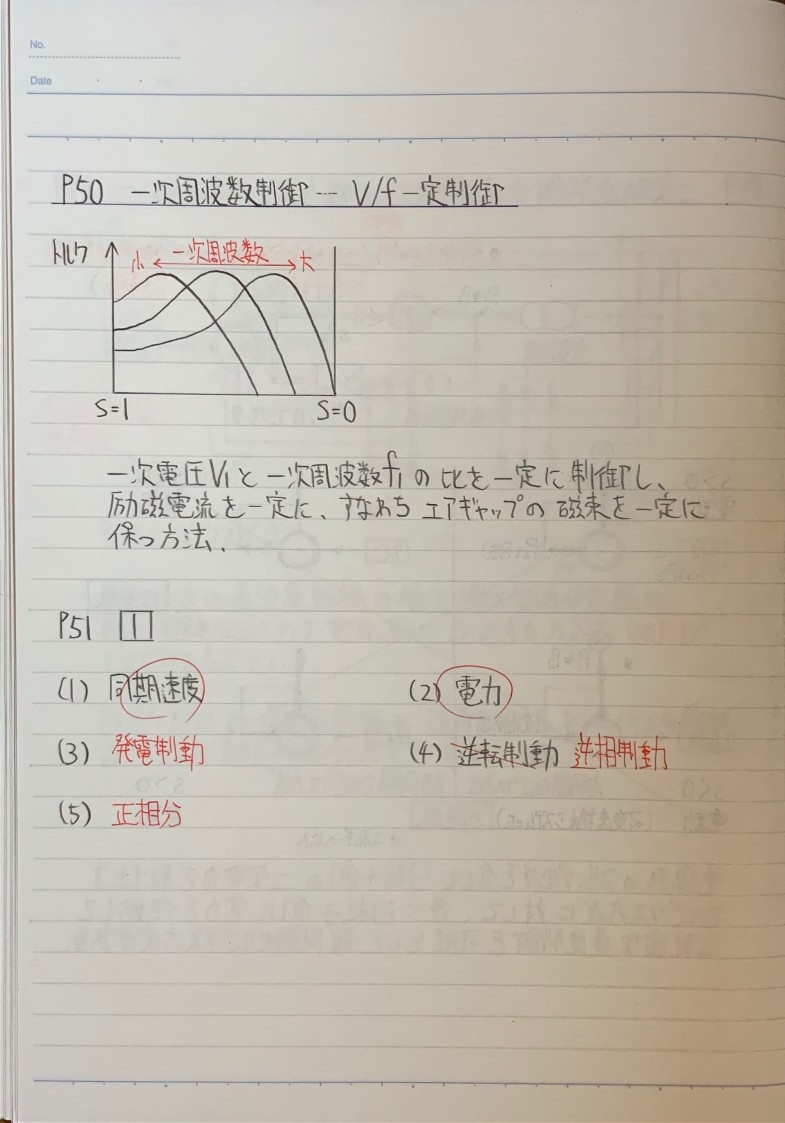 No.
Date
P50 一次周波数制御 … V/f一定制御
トルク 小 一次周波数 大
S=1 S=0
一次電圧V₁と一次周波数f₁の比を一定に制御し、
励磁電流を一定に、すなわちエアギャップの磁束を一定に
保つ方法.
P51 1
(1) 同期速度 (2) 電力
(3) 発電制動 (4) 逆転制動 逆相制動
(5) 正相分